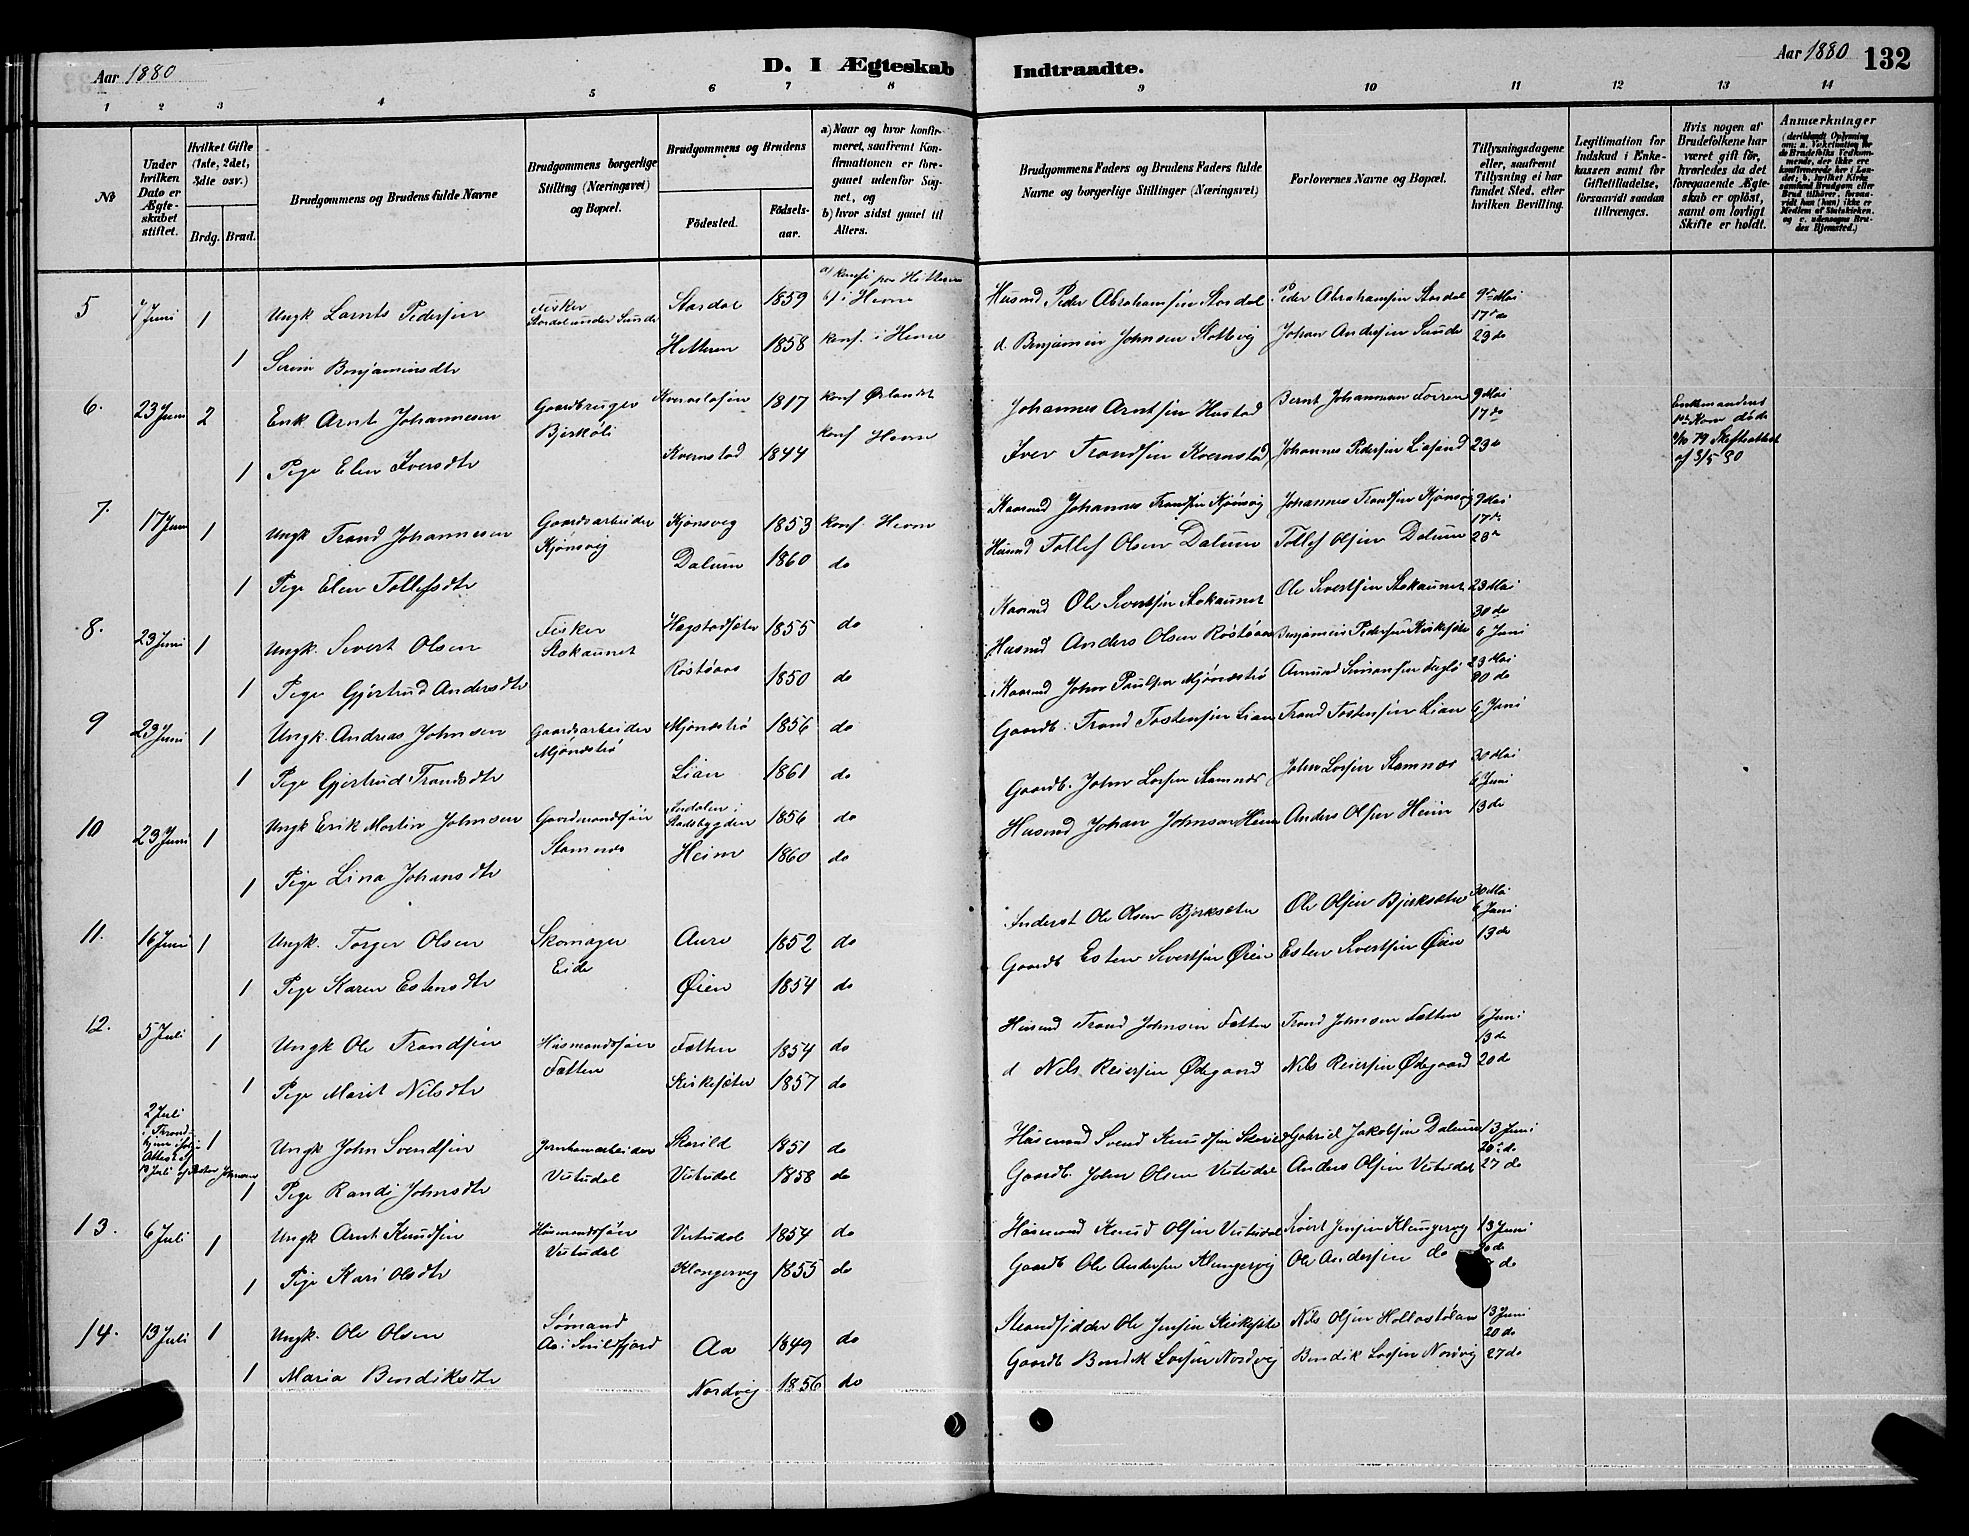 Aar 1880
D. I Ægteskab Indtraadte.
Aar 1880 132
1 2 3 4 5 6 7 8 9 10 11 12 13 14
No
Under hvilken Dato er Ægteskabet stiftet.
Hvilket Gifte (1ste, 2det, 3die osv.)
Brdg. Brud.
Brudgommens og Brudens fulde Navne
Brudgommens borgerlige Stilling (Næringsvei) og Bopæl.
Brudgommens og Brudens
Fødested.
Fødselsaar.
a) Naar og hvor konfirmeret, saafremt Konfirmationen er foregaaet udenfor Sognet, og
b) hvor sidst gaaet til Alters.
Brudgommens Faders og Brudens Faders fulde Navne og borgerlige Stillinger (Næringsvei)
Forlovernes Navne og Bopæl.
Tillysningsdagene eller, saafremt Tillysning ei har fundet Sted, efter hvilken Bevilling.
Legitimation for Indskud i Enkekassen samt for Giftetilladelse, forsaavidt saadan tiltrænges.
Hvis nogen af Brudefolkene har været gift før, hvorledes da det foregaaende Ægteskab er opløst, samt om lovligt Skifte er holdt.
Anmærkninger
5 7 Juni 1 Ungk Larnts Pedersen Fisker Stordal under Sunde Stordal 1859 a) konf. paa Hitteren b) i Hevne Husmd Peder Abrahamsen Stordal Peder Abrahamsen Stordal 9de Mai
17de do
1 Serine Benjaminsdtr Hitteren 1858 konf. i Hevne d. Benjamin Johnsen Slotvig Johan Andersen Sunde 23 do
6. 23 Juni 2 Enk Arnt Johannesen Gaardbruger Bjerkøli 1817 konf Ørlandet Johannes Arntsen Hustad Bernt Johannesen Forren 9 Mai
17 do
1 Pige Elen Iversdtr Kvernstad 1844 konf Hevne Iver Trondsen Kvernstad Johannes Pedersen Liasund 23 do
Enkemandens 1ste Kone døde 79 Skifteattest af 3/5 80
7. 17 Juni 1 Ungk Trond Johannesen Gaardsarbeider Kjønsvig Kjønsvig 1853 konf Hevne Johannes Trondsen Kjønsvig Johannes Trondsen Kjønsvig 9 Mai
17 do
1 Pige Elen Tollefsdtr Dalum 1860 do Husmd Tollef Olsen Dalum Tollef Olsen Dalum 23 do
8. 23 Juni 1 Ungk. Sivert Olsen Fisker Stokaunet Hagstadsæter 1855 do Ole Sivertsen Stokaunet Ole Sivertsen Stokaunet 23 Mai
30 do
1 Pige Gjertrud Andersdtr Røstøaas 1850 do Husmd Anders Olsen Røstøaas Benjamin Pedersen Kirkesæter 6 Juni
9 23 Juni 1 Ungk. Andreas Johnsen Gaardsarbeider Mjønestrø Mjønestrø 1856 do John Paulsen Mjønestrø Amund Simonsen 23 Mai
30 do
1 Pige Gjertrud Trondsdtr Lian 1861 do Gaardb. Trond Tostensen Lian Trond Tostensen Lian 6 Juni
10 23 Juni 1 Ungk Erik Martin Johnsen Gaardmandssøn Stamnes i Stadsbygden 1856 do Gaardb. John Larsen Stamnes John Larsen Stamnes 30 Mai
6 Juni
1 Pige Lina Johansdtr Heim 1860 do Husmd Johan Johnsen Heim Anders Olsen Heim 13 do
11. 16 Juni 1 Ungk. Torger Olsen Skomager Eide Aure 1852 do Inderst Ole Olsen Bjerksæter Ole Olsen Bjerksæter 30 Mai
6 Juni
1 Pige Karen Estensdtr Øien 1854 do Gaardb Esten Sivertsen Øien Esten Sivertsen Øien 13 do
12. 5 Juli 1 Ungk Ole Trondsen Husmandssøn Fætten Fætten 1854 do Husmd Trond Johnsen Fætten Trond Johnsen Fætten 6 Juni
13 do
1 Pige Marit Nilsdtr Kirkesæter 1857 do d Nils Reiersen Ødegaard Nils Reiersen Ødegaard 20 do
2 Juli i Throndhjem ifølge Attest af 19 Juli af Pastor 1 Ungk John Svendsen Jernbanearbeider Vitudal Skarild 1851 do Husmand Svend Knudsen Skarild Gabriel Jakobsen Dalum 13 Juni
20 do
1 Pige Randi Johnsdtr Vitudal 1858 do Gaardb. John Olsen Vitudal Anders Olsen Vitudal 27 do
13. 6 Juli 1 Ungk Arnt Knudsen Husmandssøn Vitudal Vitudal 1854 do Husmand Knud Olsen Vitudal Sivert Jensen Klungervig 13 Juni
20 do
1 Pige Kari Olsdtr Klungervig 1855 do Gaardb Ole Andersen Klungervig Ole Andersen do do
14. 13 Juli 1 Ungk. Ole Olsen Sømand Aa i Snildfjord Aa 1849 do Strandsidder Ole Jensen Kirkesæter Nils Olsen Hollastølan 13 Juni
20 do
1 Maria Bendiksdtr Nordvig 1856 do Gaardb Bendik Larsen Nordvig Bendik Larsen Nordvig 27 do